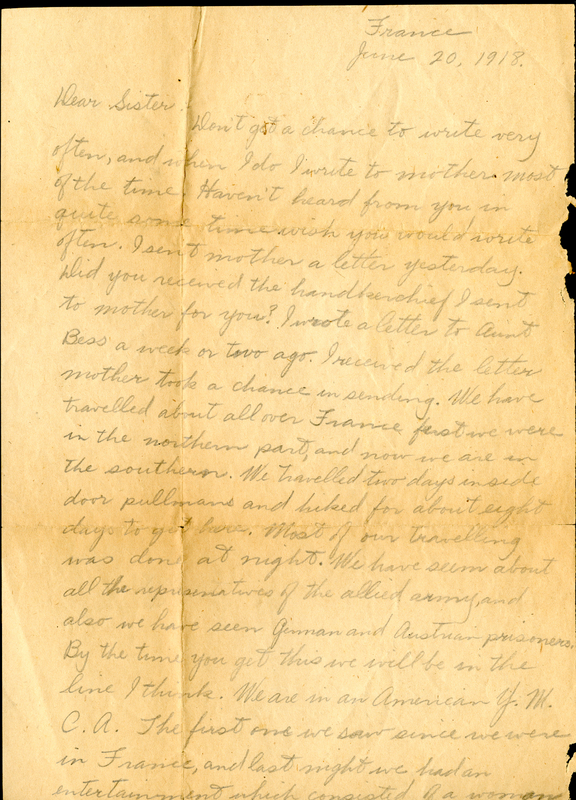 France
June 20, 1918.
Dear Sister:
Don't get a chance to write very
often, and when I do I write to mother most
of the time. Haven't heard from you in
quite some time wish you would write
often. I sent mother a letter yesterday.
Did you received the handkerchief I sent
to mother for you? I wrote a letter to Aunt
Bess a week or two ago. I received the letter
mother took a chance in sending. We have
travelled about all over France first we were
in the northern part, and now we are in
the southern. We travelled two days inside
door pullmans and hiked for about eight
days to get here. Most of our travelling
was done at night. We have seem about
all the represenatives of the allied army, and
also we have seen German and Austrian prisoners.
By the time you get this we will be in the
line I think. We are in an American Y. M.
C. A. The first one we saw since we were
in France, and last night we had an
entertainment which consisted of a woman